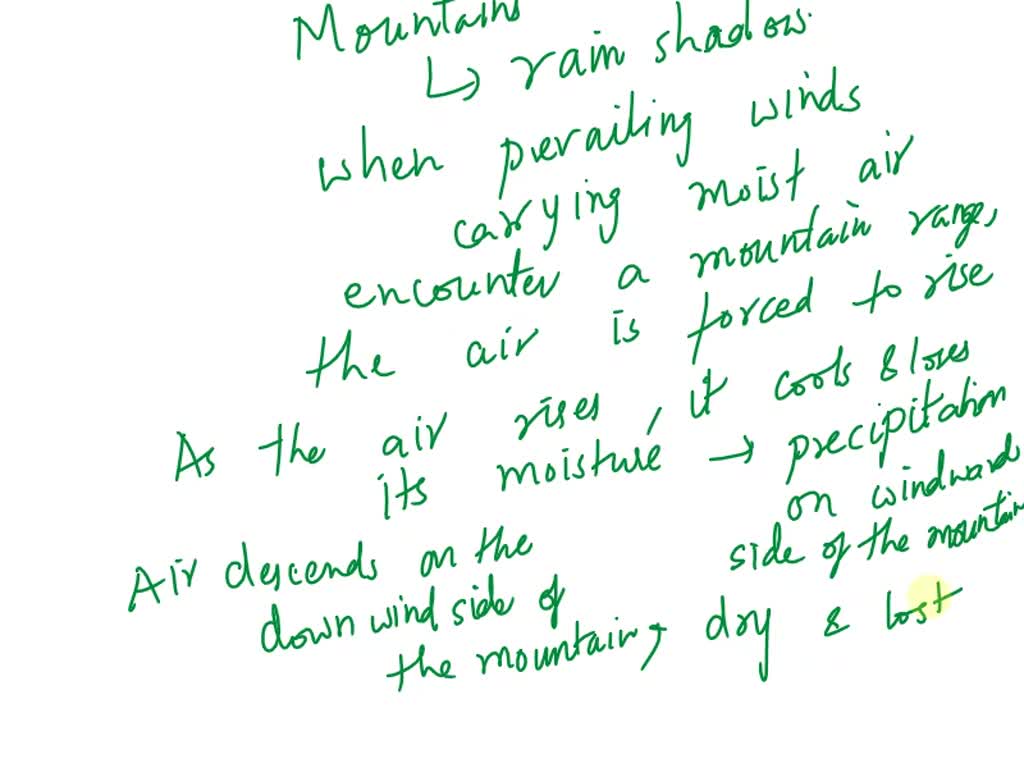 Mountains
↳ rain shadow.
when prevailing winds
carrying moist air
encounter a mountain range,
the air is forced to rise
As the air rises, it cools & loses
its moisture → precipitation
on windward
side of the mountain
Air descends on the
down wind side of
the mountain, dry & lost